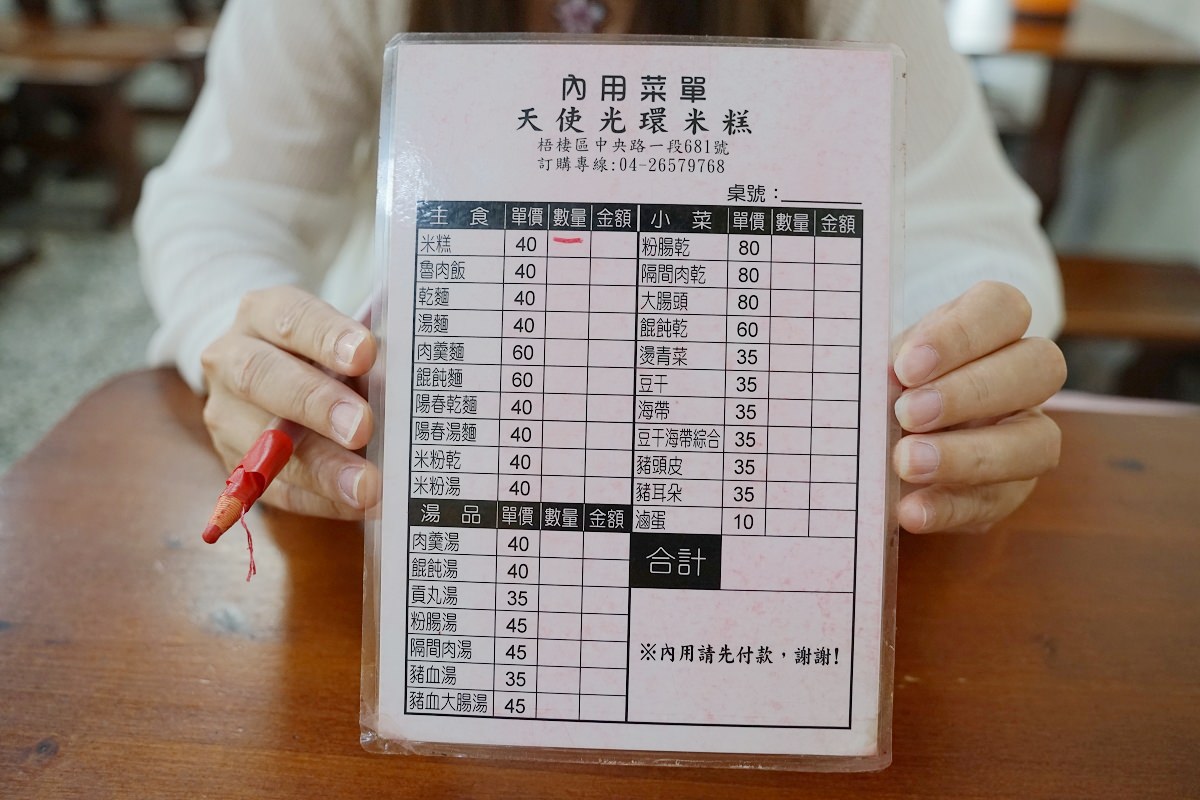 內用菜單
天使光環米糕
梧棲區中央路一段681號
訂購專線:04-26579768
桌號：
主食 單價 數量 金額
米糕 40
魯肉飯 40
乾麵 40
湯麵 40
肉羹麵 60
餛飩麵 60
陽春乾麵 40
陽春湯麵 40
米粉乾 40
米粉湯 40
湯品 單價 數量 金額
肉羹湯 40
餛飩湯 40
貢丸湯 35
粉腸湯 45
隔間肉湯 45
豬血湯 35
豬血大腸湯 45
小菜 單價 數量 金額
粉腸乾 80
隔間肉乾 80
大腸頭 80
餛飩乾 60
燙青菜 35
豆干 35
海帶 35
豆干海帶綜合 35
豬頭皮 35
豬耳朵 35
滷蛋 10
合計
※內用請先付款，謝謝!